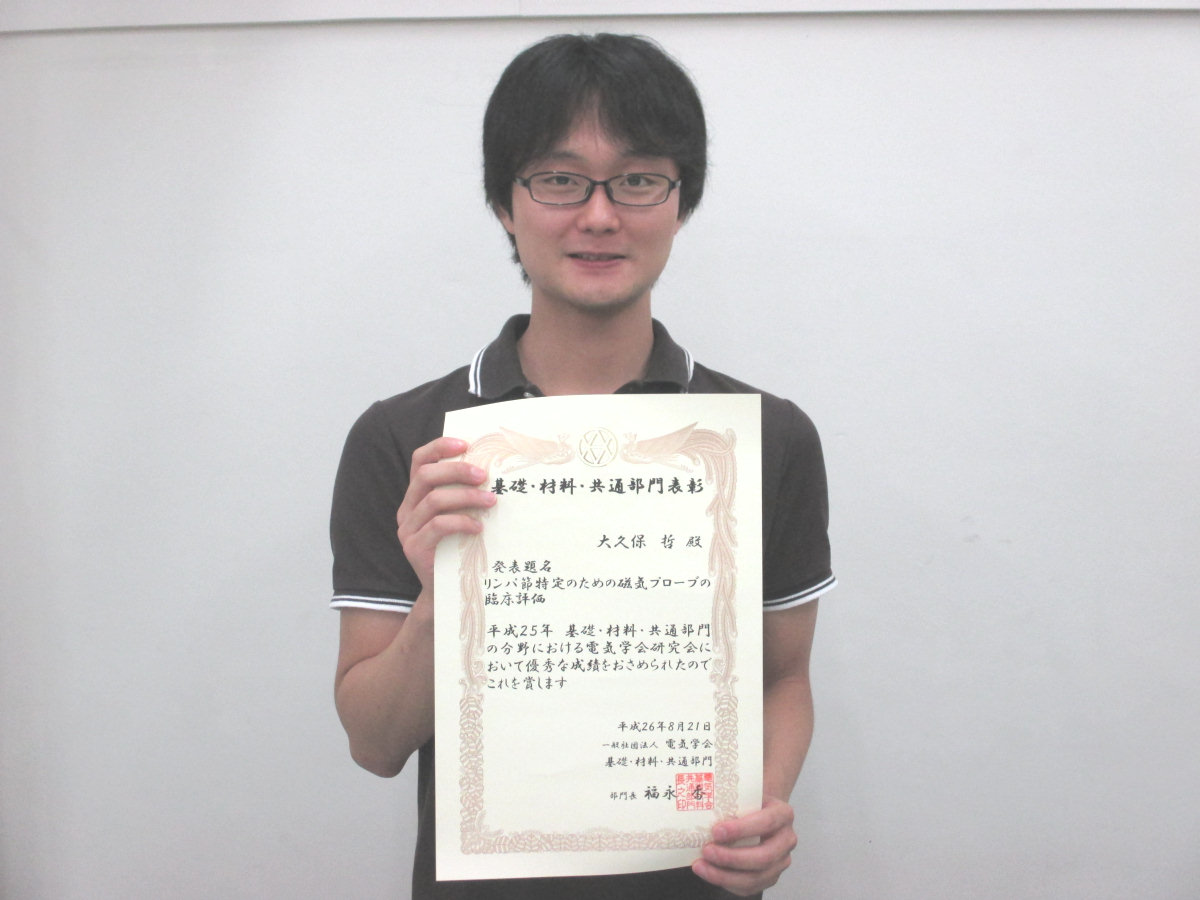 基礎・材料・共通部門表彰
大久保 哲 殿
発表題名
リンパ節特定のための磁気プローブの
臨床評価
平成25年 基礎・材料・共通部門
の分野における電気学会研究会に
おいて優秀な成績をおさめられたので
これを賞します
平成26年8月21日
一般社団法人 電気学会
基礎・材料・共通部門
部門長 福永 香